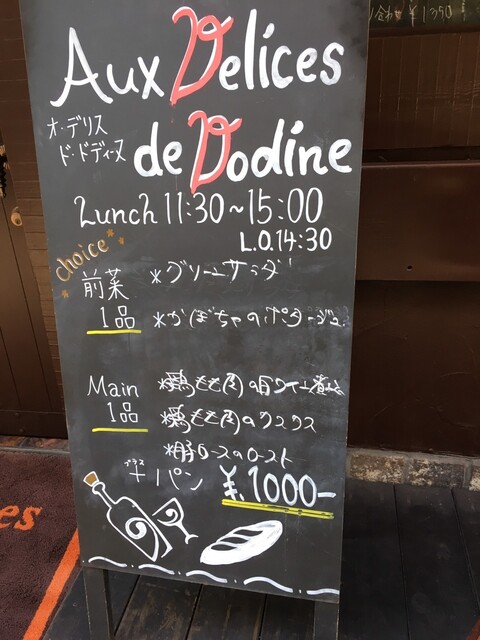 Aux Delices
オ・デリス
ド・ドディーヌ
de Dodine
Lunch 11:30~15:00
L.O.14:30
choice
前菜
1品
*グリーンサラダ
*かぼちゃのポタージュ
Main
1品
*鶏もも肉の白ワイン煮込み
*鶏もも肉のクスクス
*豚ロースのロースト
プラス
+パン ¥.1000-
¥1350
es